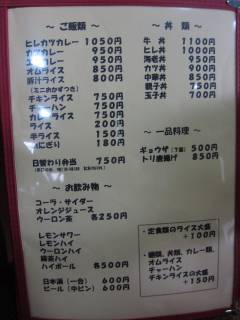 ～ ご飯類 ～
ヒレカツカレー 1050円
カツカレー 950円
カレー 950円
オムライス 850円
豚汁ライス 800円
(ミニおかずつき)
チキンライス 750円
チャーハン 750円
カレーライス 750円
ライス 200円
半ライス 150円
おにぎり 180円
日替わり弁当 750円
～ お飲み物 ～
コーラ・サイダー
オレンジジュース
ウーロン茶 各250円
レモンサワー
レモンハイ
ウーロンハイ
緑茶ハイ
ハイボール 各500円
日本酒(一合) 600円
ビール(中ビン) 600円
～ 丼類 ～
牛丼 1100円
ヒレ丼 1000円
海老丼 950円
カツ丼 900円
中華丼 850円
親子丼 750円
玉子丼 700円
～ 一品料理 ～
ギョウザ 500円
トリ唐揚げ 850円
・定食類のライス大盛
+100円
・麺類、丼類、カレー類、
オムライス
チャーハン
チキンライスの大盛
+150円